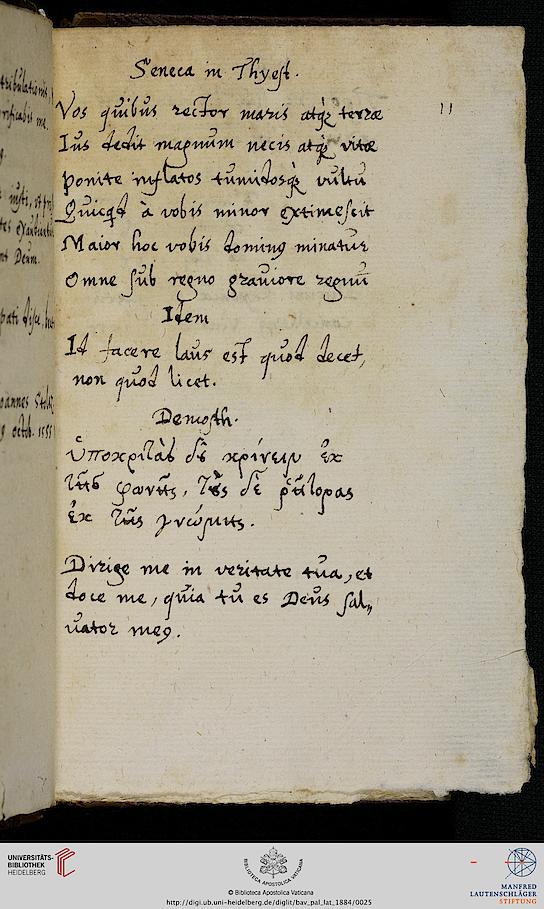 Seneca in Thyest.
11
Vos quibus rector maris atq; terræ
Ius dedit magnum necis atq; vitæ
Ponite inflatos tumidosq; vultu
Quicqd à vobis minor extimescit
Maior hoc vobis dominus minatur
Omne sub regno graviore regnū
Item
Id facere laus est quod decet,
non quod licet.
Demosth.
ὑποκριτὰς δεῖ κρίνειν ἐκ
τῆς φωνῆς, τοὺς δὲ ῥήτορας
ἐκ τῆς γνώμης.
Dirige me in veritate tua, et
doce me, quia tu es Deus sal„
uator meus.
tribulationis
me.
Deum.
octob. 1555
UNIVERSITÄTS-
BIBLIOTHEK
HEIDELBERG
BIBLIOTECA APOSTOLICA VATICANA
© Biblioteca Apostolica Vaticana
http://digi.ub.uni-heidelberg.de/diglit/bav_pal_lat_1884/0025
MANFRED
LAUTENSCHLÄGER
STIFTUNG